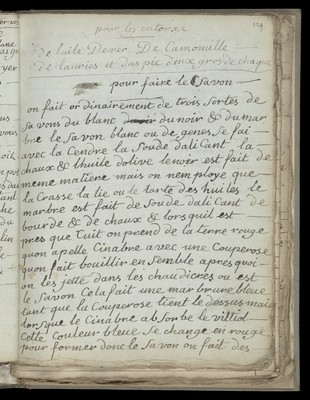 pour les entorxe
129
de luile Dever De Camomille
de lauries et das pic deux gros de chaque
pour faire le Savon
on fait or dinairement de trois Sortes de
Savons du blanc du noir & du mar
bre le Savon blanc ou de genes Se fai
avec la Cendre la Soude dali Cant la
chaux & lhuile dolive le noir est fait de
meme matiere mais on nemploye que
la Crasse la lie ou le tarte des huiles le
marbre est fait de Soude dali Cant de
bourde & de chaux & lors quil est
pres que Cuit on prend de la terre rouge
quon apelle Cinabre avec une Couperose
quon fait bouillir en Semble apres quoi
on les jette dans les chaudieres ou est
le Savon Cela fait une mar brure bleue
tant que la Couperose tient le dessus mais
lorsque le Cinabre ab Sorbe le vittiol
Cette Couleur bleue Se change en rouge
pour former donc le Savon on fait des